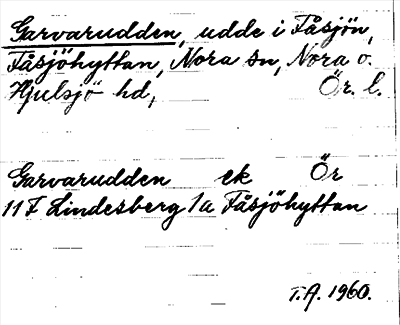 Garvarudden, udde i Fåsjön,
Fåsjöhyttan, Nora sn, Nora o.
Hjulsjö hd, Ör. l.
Garvarudden ek Ör
11 F Lindesberg 1a Fåsjöhyttan
T.A. 1960.